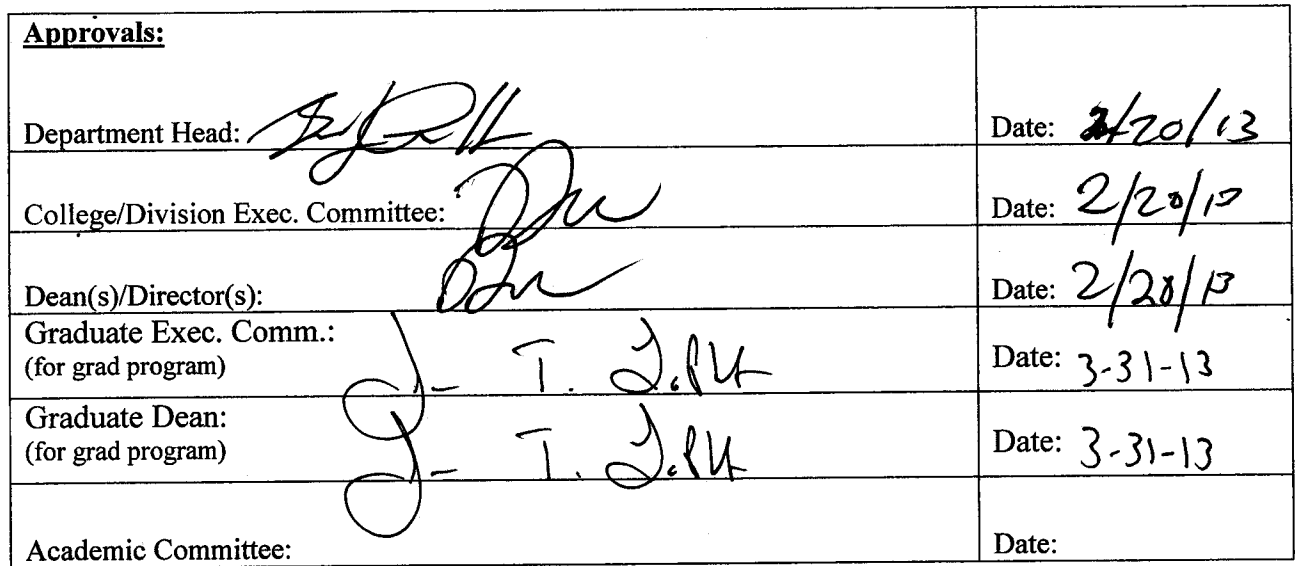 Approvals:
Department Head: Date: 2/20/13
College/Division Exec. Committee: Date: 2/20/13
Dean(s)/Director(s): Date: 2/20/13
Graduate Exec. Comm.:
(for grad program) Date: 3-31-13
Graduate Dean:
(for grad program) Date: 3-31-13
Academic Committee: Date: